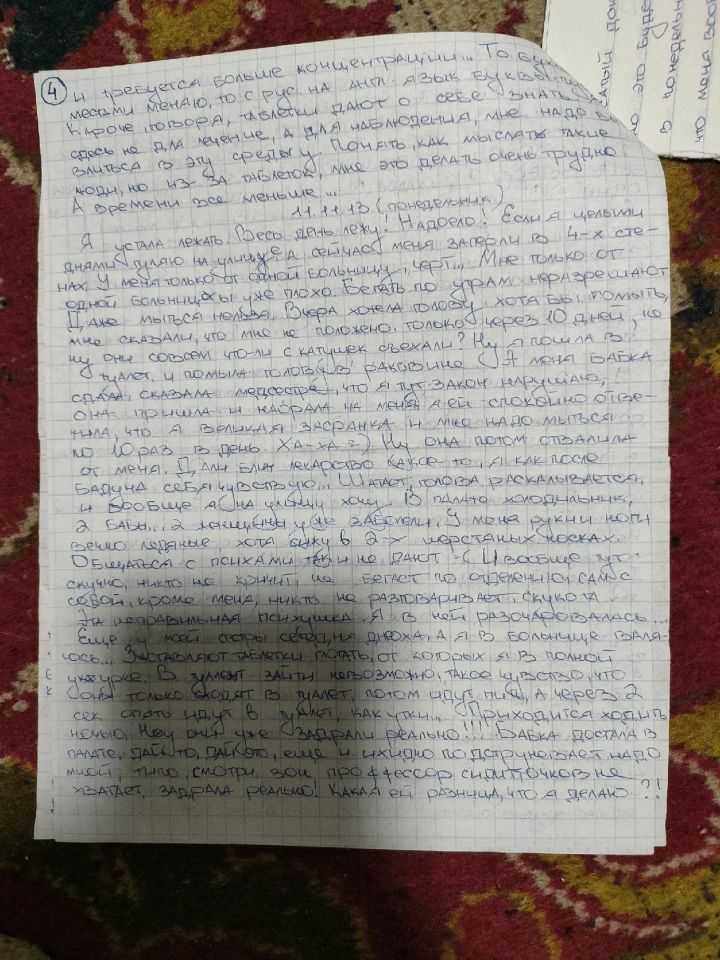 4
и требуется больше концентрации... То бук
местами меняю, то с рус. на англ. язык буквы
Короче говоря, таблетки дают о себе знать.
здесь не для лечение, а для наблюдения, мне надо
влиться в эту среду у Понять, как мыслят такие
люди, но из-за таблеток, мне это делать очень трудно.
А времени все меньше...
11.11.13 (понедельник)
Я устала лежать. Весь день лежу! Надоело! Если я целыми
днями гуляю на улице, а сейчас меня заперли в 4-х сте-
нах. У меня только от одной больницы, черт... Мне только от
одной больницы уже плохо. Бегать по утрам неразрешают
Даже мыться нельзя. Вчера хотела голову хотя бы помыть,
мне сказали, что мне не положено. только через 10 дней,
ну они совсем что-ли с катушек съехали? Ну я пошла в
туалет, и помыла голову в раковине. А меня бабка
сдала, сказала медсестре, что я тут закон нарушаю,
она пришла и наорала на меня. Я ей спокойно отве-
тила, что я великая засранка и мне надо мыться
по 10 раз в день. Ха-ха =) Ну она потом отвалила
от меня. Дали блин лекарство какое-то, я как после
бадуна себя чувствую... Шатает, голова раскалывается,
и вообще я на улицу хочу... В палате холодильник,
2 бабы... 2 женщины уже заболели, У меня руки и ноги
вечно ледяные, хотя сижу в 2-х шерстяных носках.
Общаться с психами так и не дают :-( И вообще тут
скучно, никто не кричит, не бегает по отделению, сам с
собой, кроме меня, никто не разговаривает. скукота
Эта неправильная психушка. Я в ней разочаровалась...
Еще у моей сестры сегодня днюха, а я в больнице валя-
юсь... Заставляют таблетки глотать, от которых я в полной
укурке. В туалет зайти невозможно, такое чувство, что
они только сходят в туалет, потом идут пить, а через 2
сек опять идут в туалет, как утки... Приходится ходить
ночью. Ноу они уже задрали реально!... Бабка достала в
палате, дай то, дай это, еще и ихидно подструневает надо
мной, типо, смотри, вон проффессор сидит, очков не
хватает. задрала реально! Какая ей разница, что я делаю?!
но это буде
в понедельн
что меня